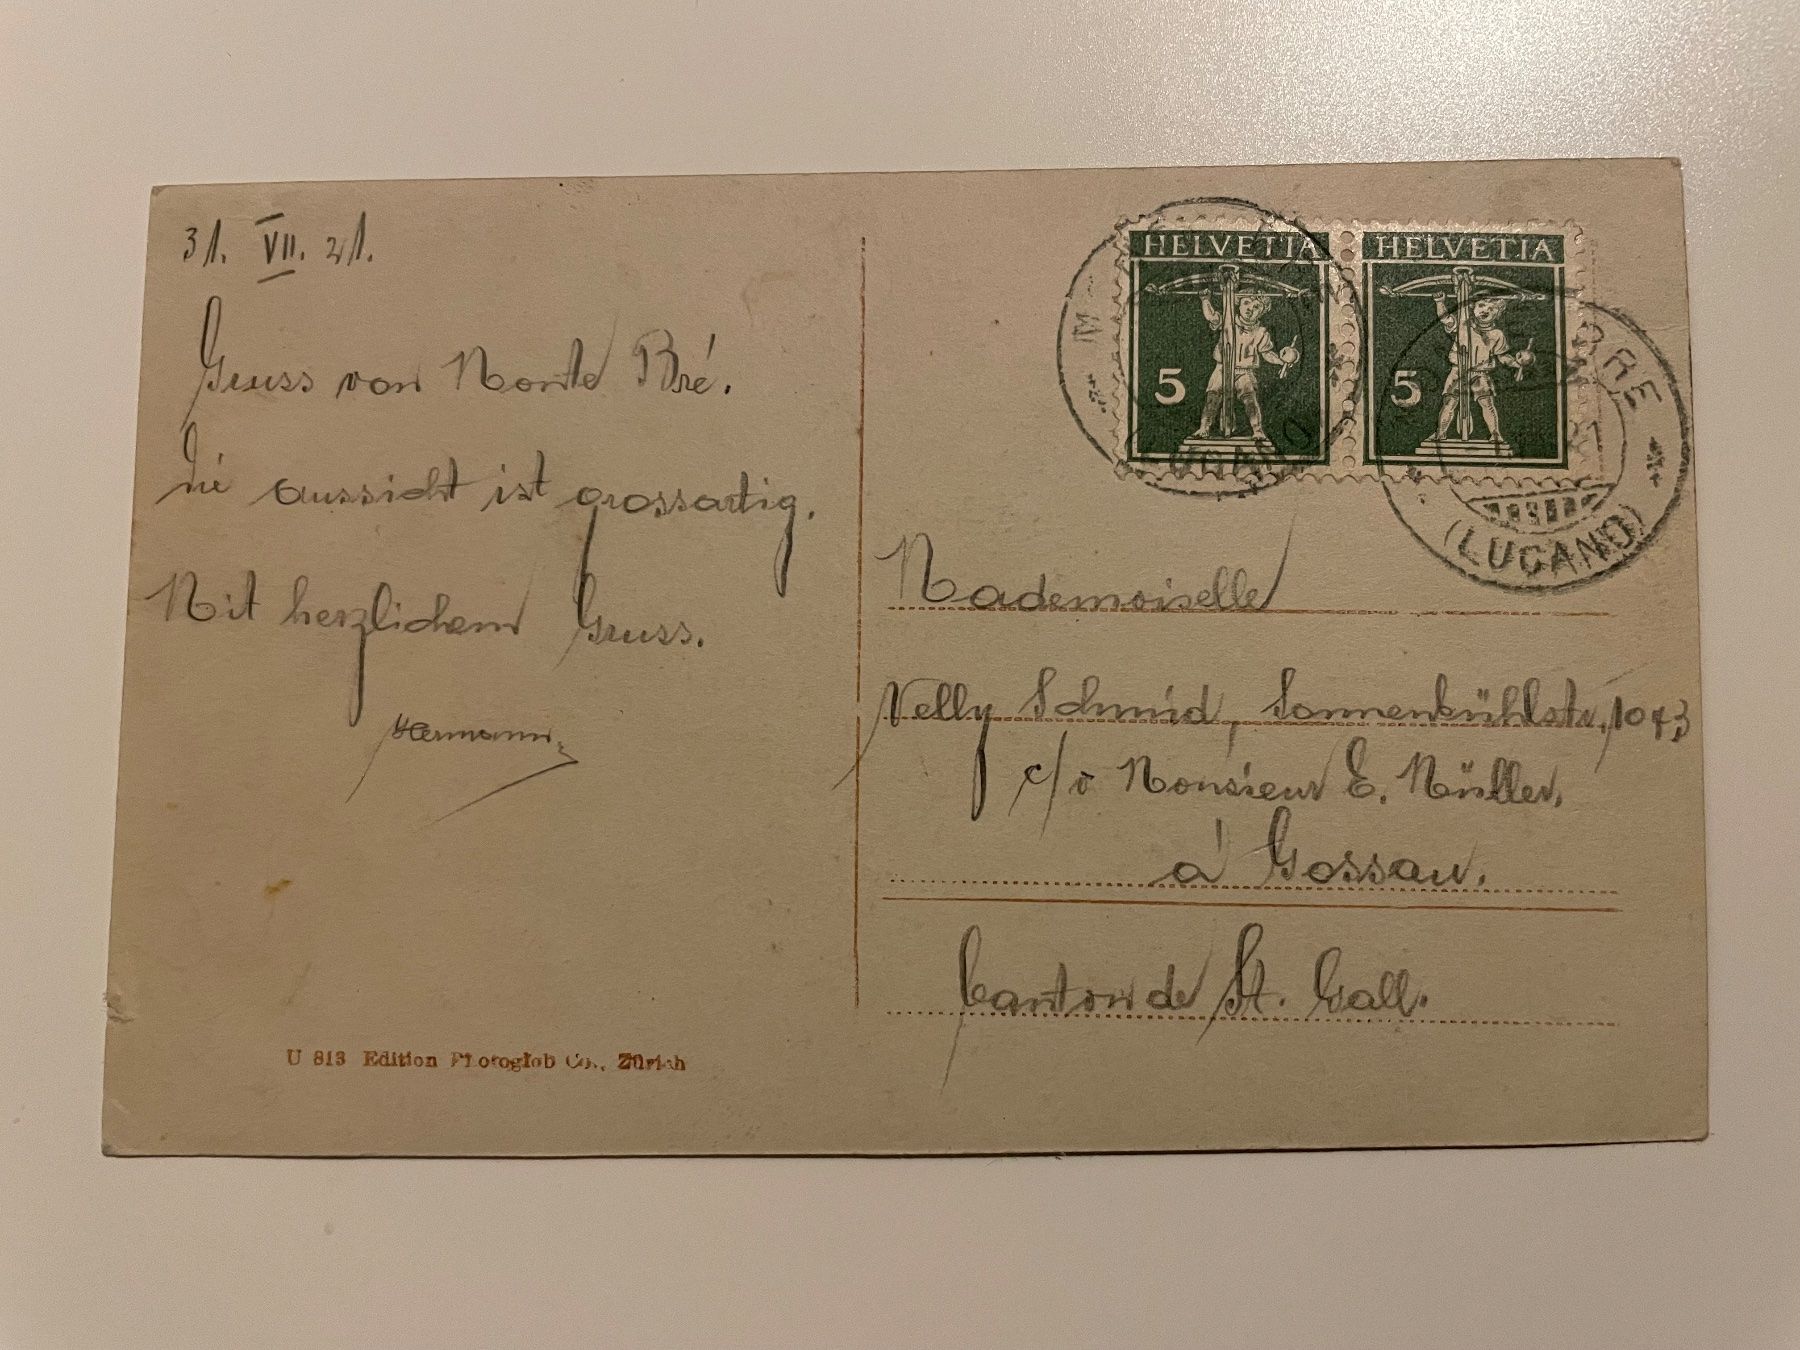 31. VII. 21.
Gruss von Monte Bré.
Die aussicht ist grossartig.
Mit herzlichem Gruss.
Hermann
U 813 Edition Photoglob Co., Zürich
HELVETIA
5
HELVETIA
5
BRE
(LUGANO)
Mademoiselle
Nelly Schmid, Sonnenbühlstr. 1043
c/o Monsieur E. Müller,
à Gossau.
Canton de St. Gall.